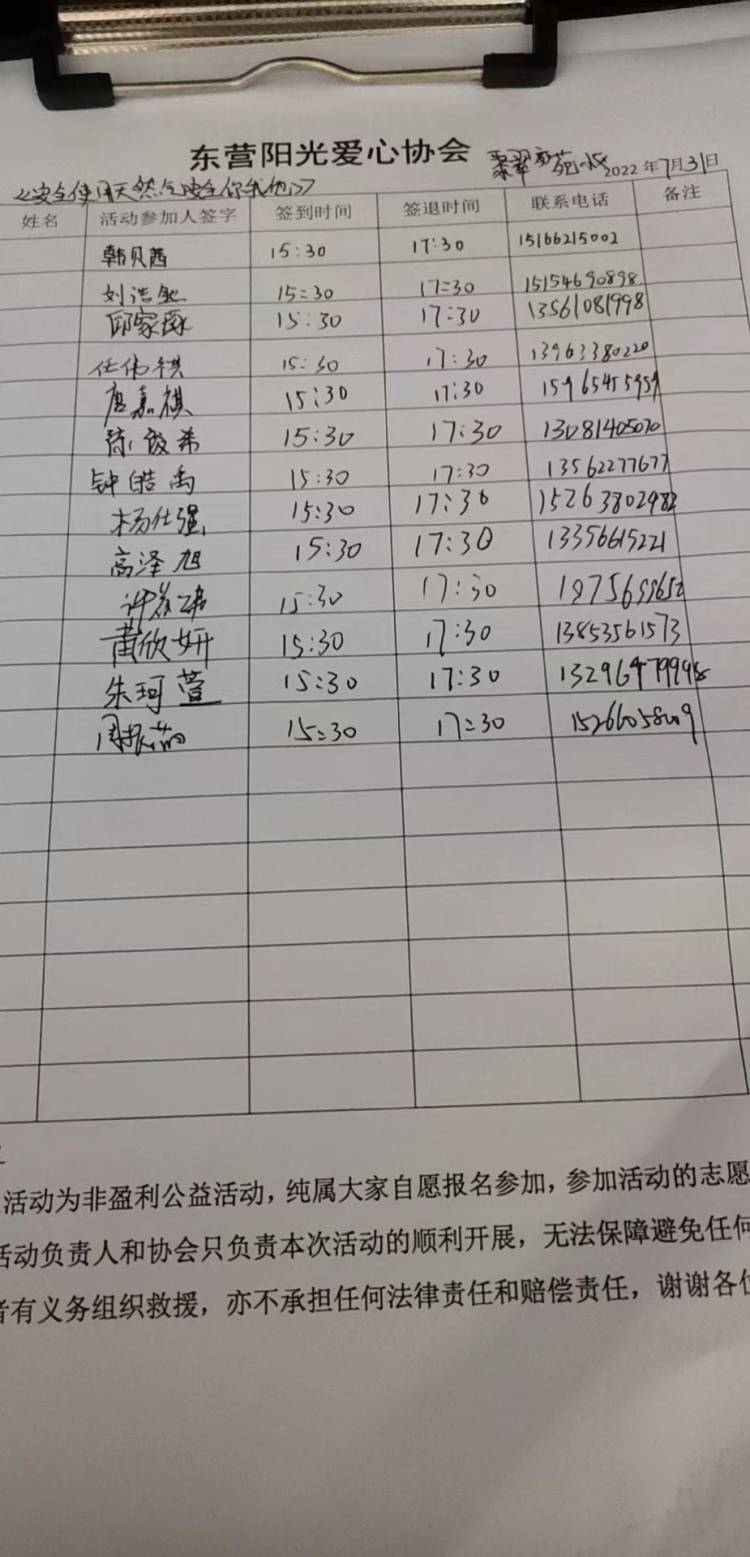 东营阳光爱心协会
《安全使用天然气 安全你我他》 2022年7月31日
姓名 活动参加人签字 签到时间 签退时间 联系电话 备注
韩贝茜 15:30 17:30 15166215002
15:30 17:30 15154690898
邱家 15:30 17:30 13561081998
任伟祺 15:30 17:30 13963380220
唐嘉祺 15:30 17:30
15:30 17:30 13081405070
钟皓禹 15:30 17:30 13562277677
杨仕强 15:30 17:30 15263802982
高泽旭 15:30 17:30 13356615221
15:30 17:30
黄欣妍 15:30 17:30 13853561573
朱珂萱 15:30 17:30
15:30 17:30
活动为非盈利公益活动，纯属大家自愿报名参加，参加活动的志愿
活动负责人和协会只负责本次活动的顺利开展，无法保障避免任何
者有义务组织救援，亦不承担任何法律责任和赔偿责任，谢谢各位